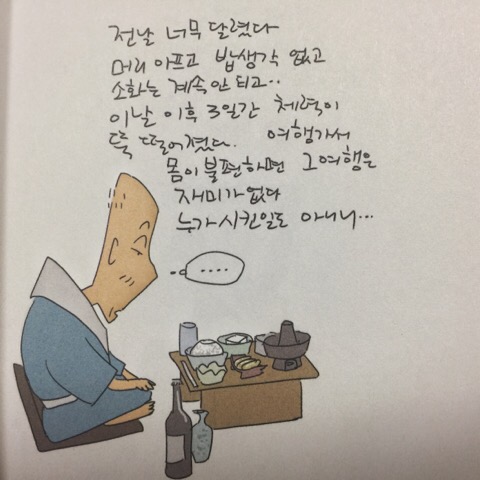 전날 너무 달렸다
머리 아프고 밥생각 없고
소화는 계속 안 되고..
이날 이후 3일간 체력이
뚝 떨어졌다. 여행가서
몸이 불편하면 그여행은
재미가 없다
누가시킨일도 아니니...
....